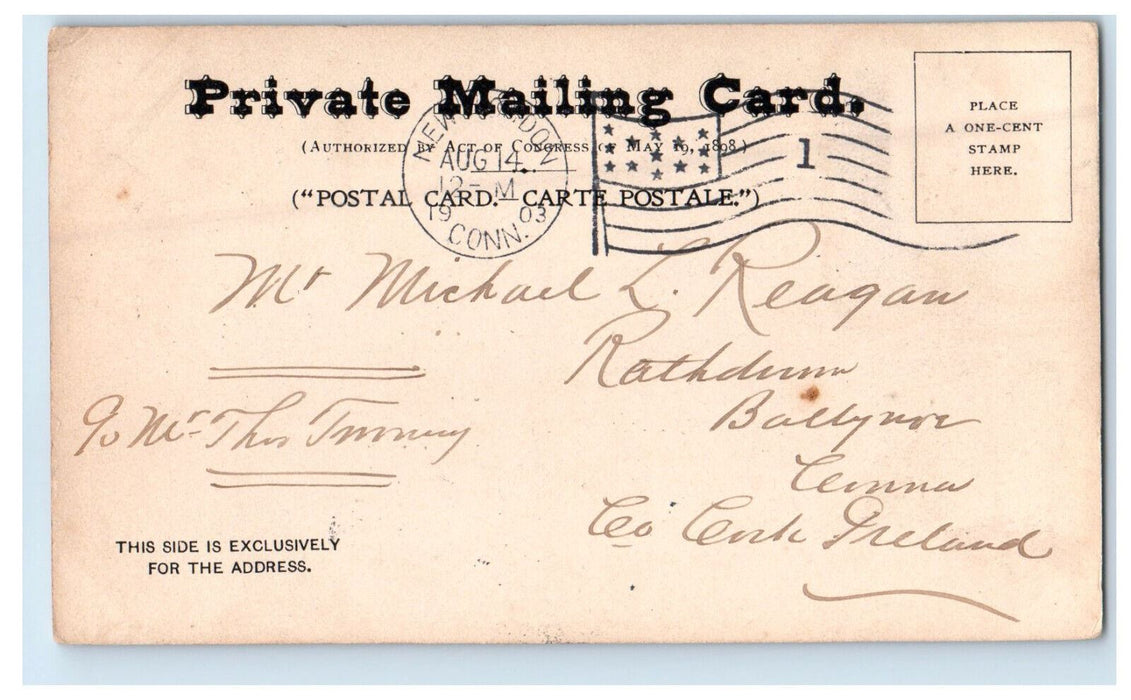 Private Mailing Card.
(Authorized by Act of Congress of May 19, 1898)
("POSTAL CARD.—CARTE POSTALE.")
PLACE
A ONE-CENT
STAMP
HERE.
NEW LONDON
AUG 14
12-M
1903
CONN.
1
Mr Michael L. Reagan
Rathdrum
Ballynoe
Conna
Co Cork Ireland
Mr Thos Twomey
THIS SIDE IS EXCLUSIVELY
FOR THE ADDRESS.